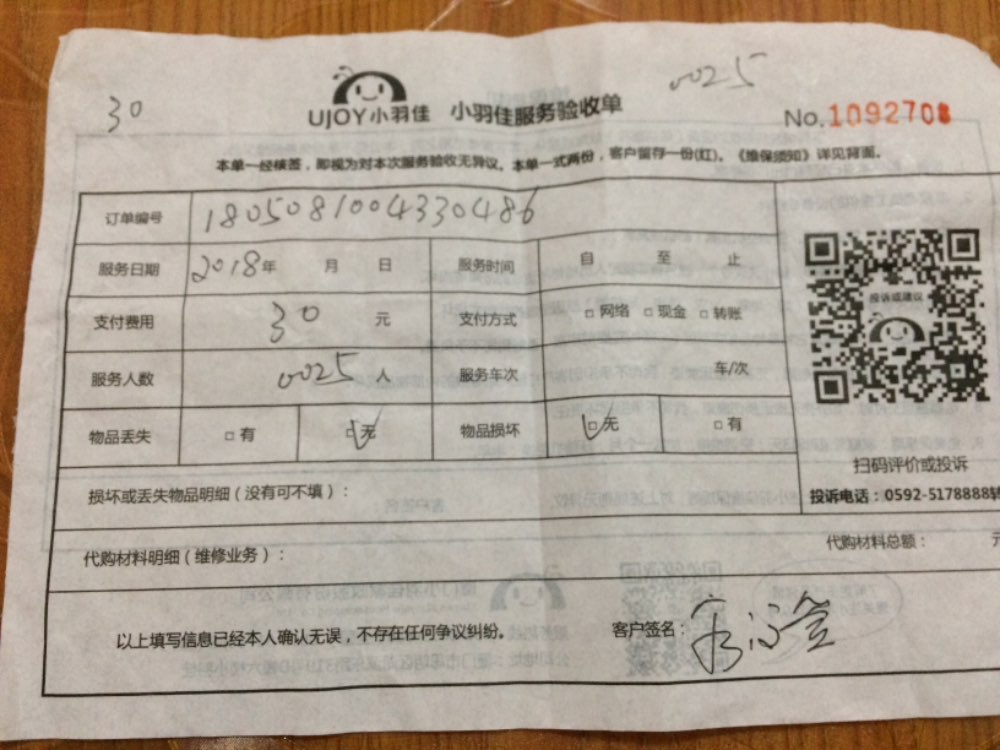 30
0025
UJOY小羽佳 小羽佳服务验收单
No.1092708
本单一经核签，即视为对本次服务验收无异议。本单一式两份，客户留存一份(红)。《维保须知》详见背面。
订单编号 1805081004330486
服务日期 2018年 月 日 服务时间 自 至 止
支付费用 30 元 支付方式 □网络 □现金 □转账
投诉或建议
服务人数 0025 人 服务车次 车/次
物品丢失 □有 □无 物品损坏 □无 □有
扫码评价或投诉
损坏或丢失物品明细（没有可不填）：
投诉电话：0592-5178888转
代购材料明细（维修业务）：
代购材料总额： 元
以上填写信息已经本人确认无误，不存在任何争议纠纷。
客户签名：